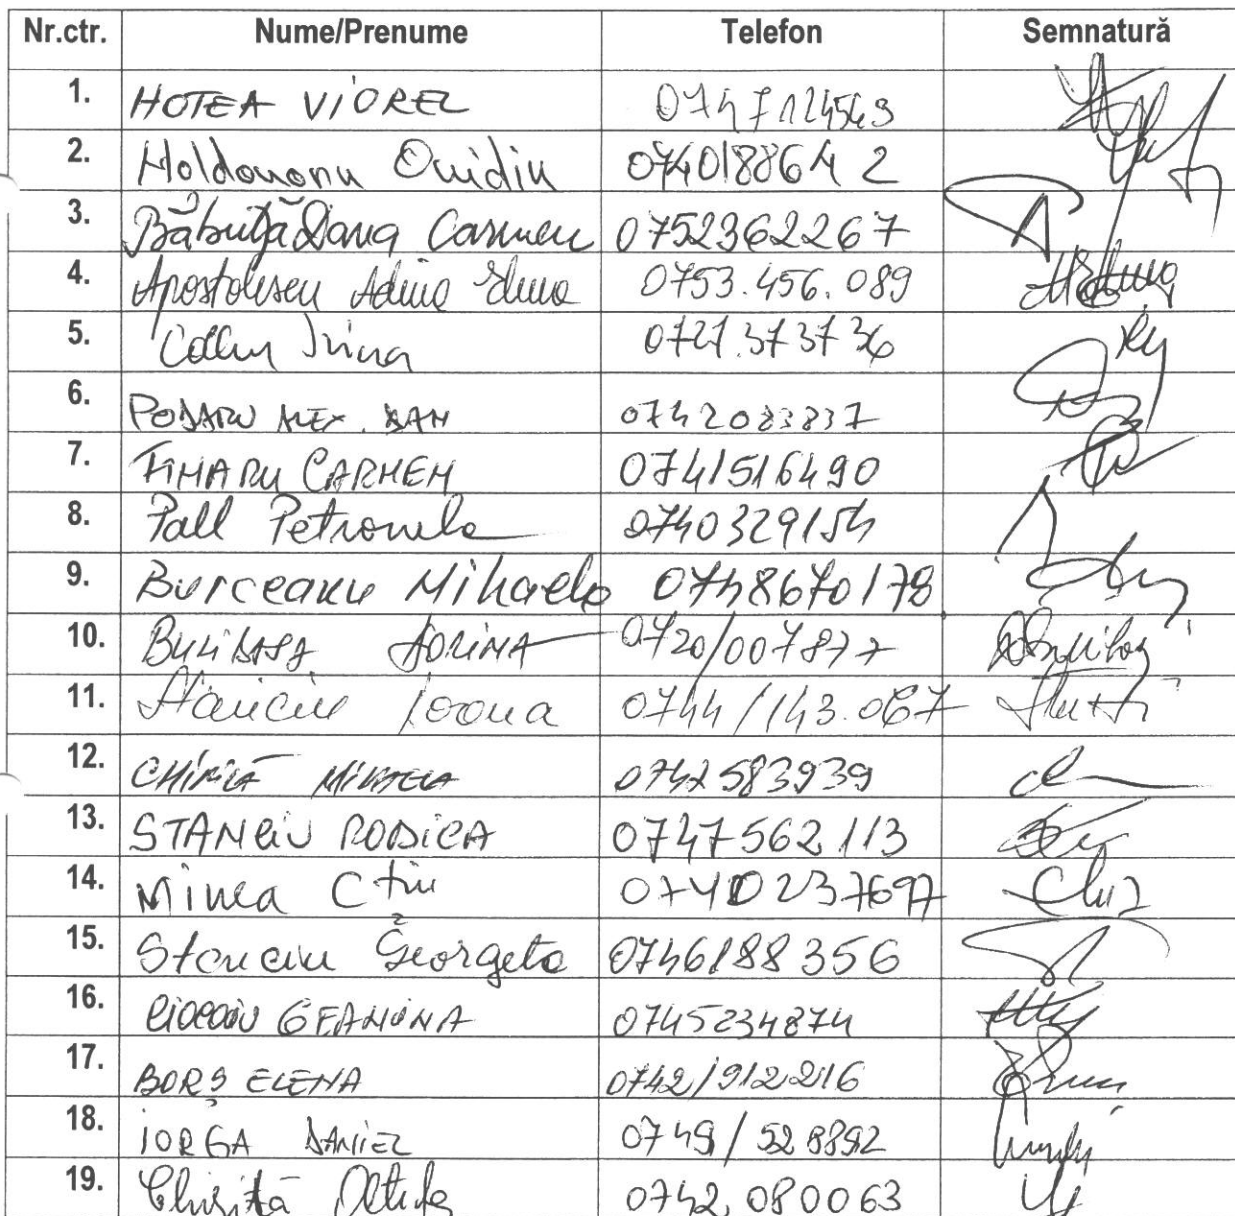 Nr.ctr. Nume/Prenume Telefon Semnatură
1. HOTEA VIOREL 0747124543
2. Moldovanu Ovidiu 0740188642
3. Băbuță Dana Carmen 0752362267
4. Apostolescu Adina Elena 0753.456.089
5. Irina 0727.373736
6. ALEX. DAN 0742083837
7. FIMARU CARMEN 0741516490
8. Pall Petronela 0740329154
9. Burceanu Mihaela 0748670178
10. BULIBASA 0720/007877
11. Stanciu Ioana 0744/143.067
12. CHIRILĂ MIHAELA 0742583939
13. STANCIU RODICA 0747562113
14. Minea Ctin 0740237697
15. Stanciu Georgeta 0746188356
16. GEANINA 0745234874
17. BORȘ ELENA 0742/912216
18. IORGA DANIEL 0749/528892
19. 0742.080063